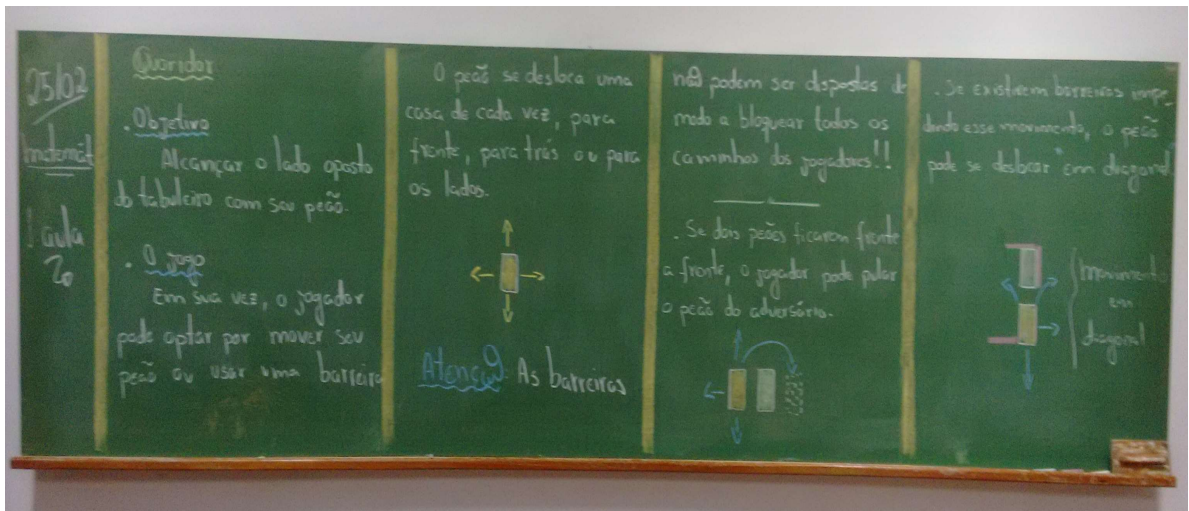 25/02
Matemát
1 aula
Quoridor
. Objetivo
Alcançar o lado oposto
do tabuleiro com seu peão.
. O jogo
Em sua vez, o jogador
pode optar por mover seu
peão ou usar uma barreira
O peão se desloca uma
casa de cada vez, para
frente, para trás ou para
os lados.
Atenção: As barreiras
não podem ser dispostas de
modo a bloquear todos os
caminhos dos jogadores!!
. Se dois peões ficarem frente
a frente, o jogador pode pular
o peão do adversário.
. Se existirem barreiras impe-
dindo esse movimento, o peão
pode se deslocar em diagonal
movimento
em
diagonal